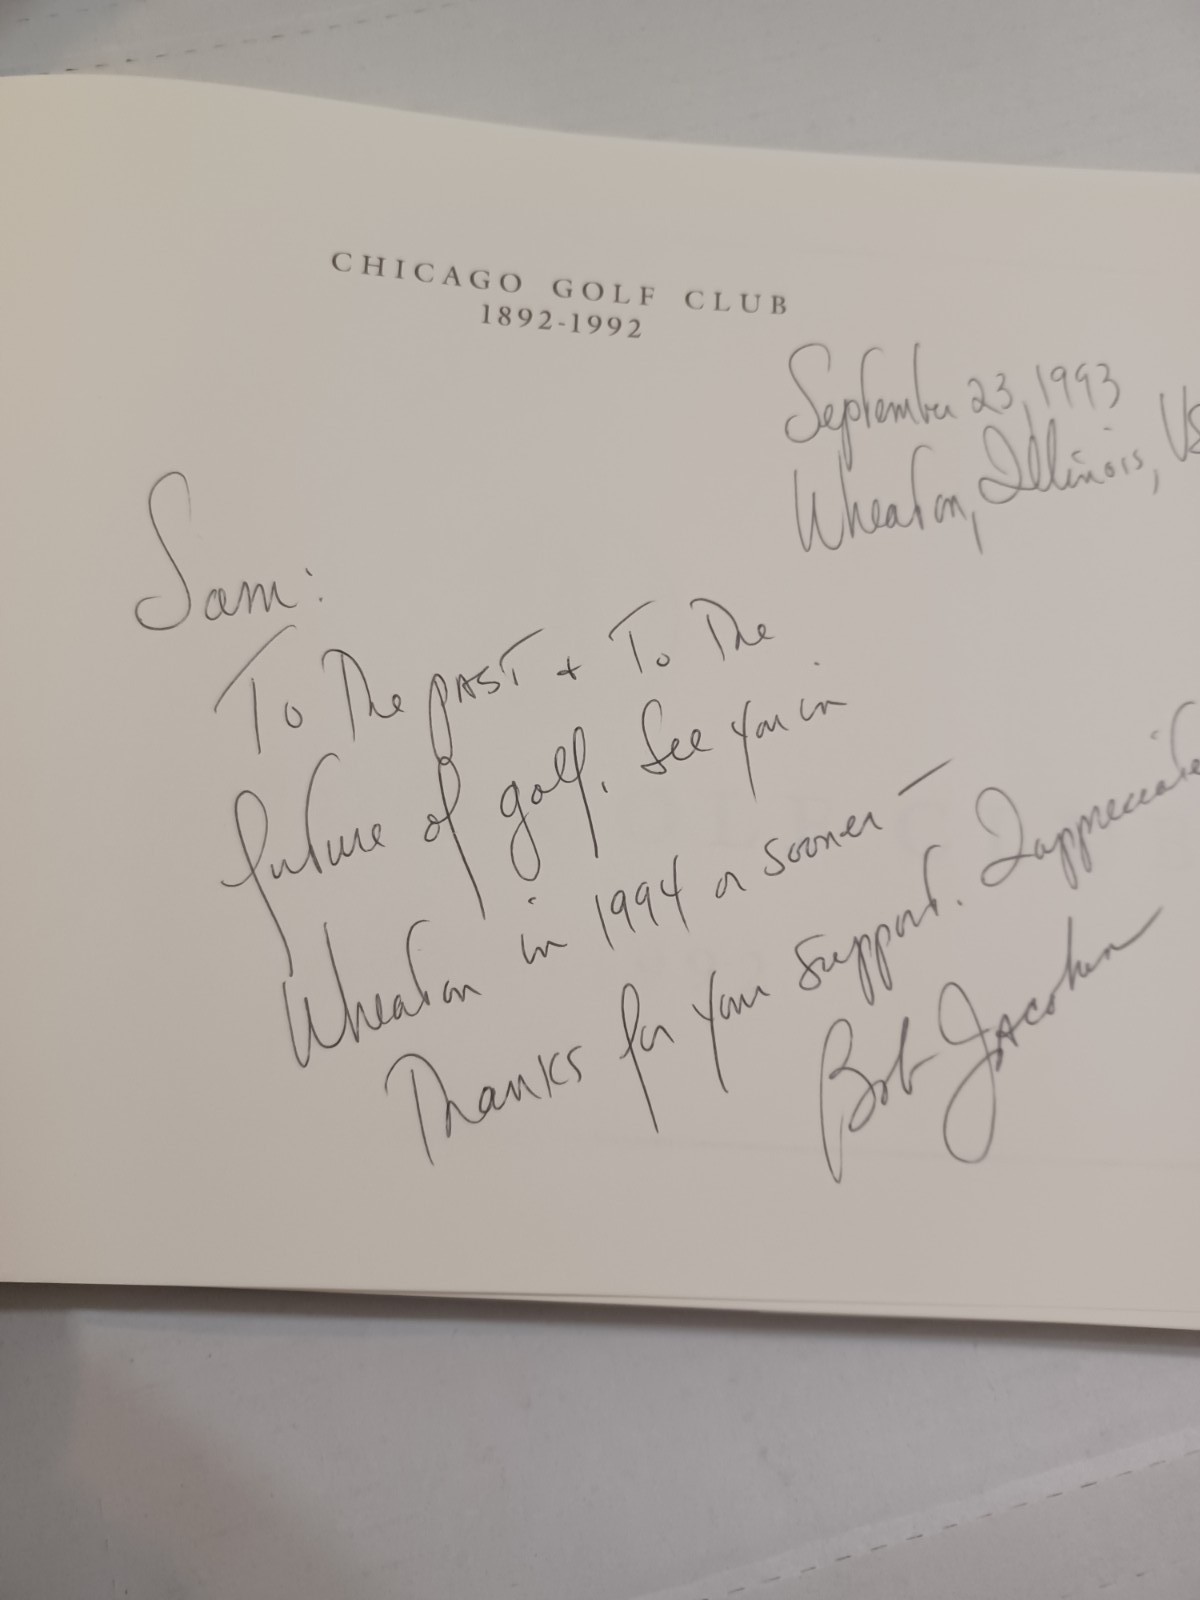 CHICAGO GOLF CLUB
1892-1992
September 23, 1993
Wheaton, Illinois, US
Sam:
To The past + To The
future of golf. See you in
Wheaton in 1994 or sooner —
Thanks for your support. I appreciate
Bob Jacobsen